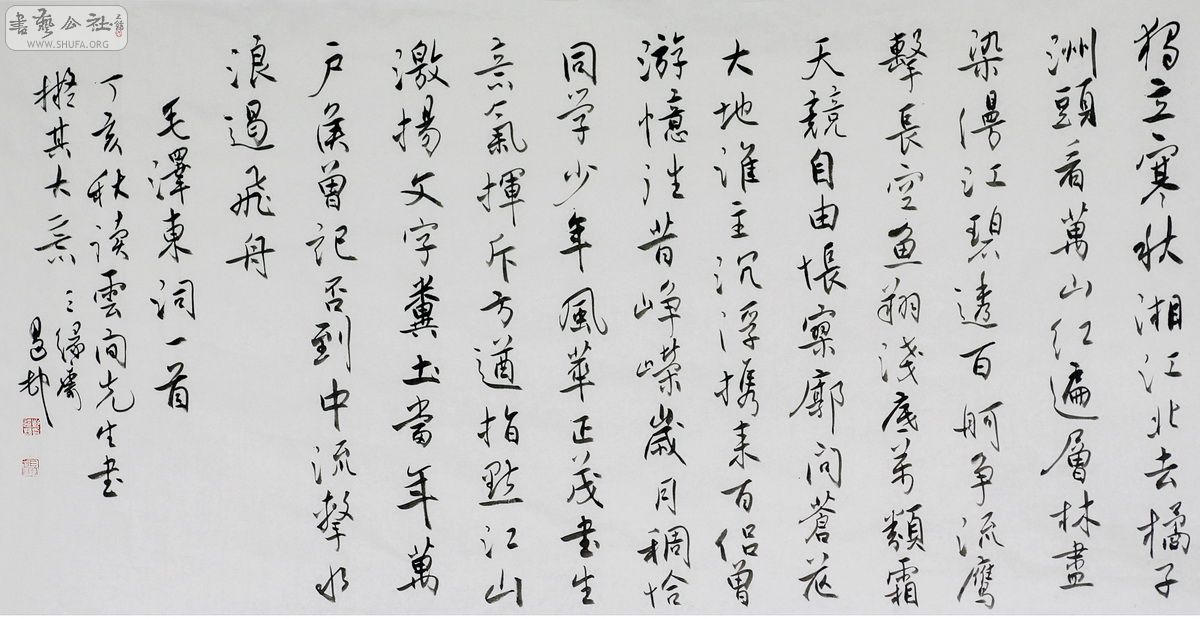 獨立寒秋湘江北去橘子
洲頭看萬山红遍層林盡
染漫江碧透百舸争流鹰
擊長空鱼翔浅底万類霜
天競自由悵寥廓问蒼茫
大地谁主沉浮携来百侣曾
游憶往昔峥嵘歲月稠恰
同学少年風華正茂书生
意氣揮斥方遒指點江山
激揚文字糞土當年萬
户侯曾记否到中流擊水
浪遏飛舟
毛澤東词一首
丁亥秋读雲间先生书
擬其大意
書藝公社
WWW.SHUFA.ORG